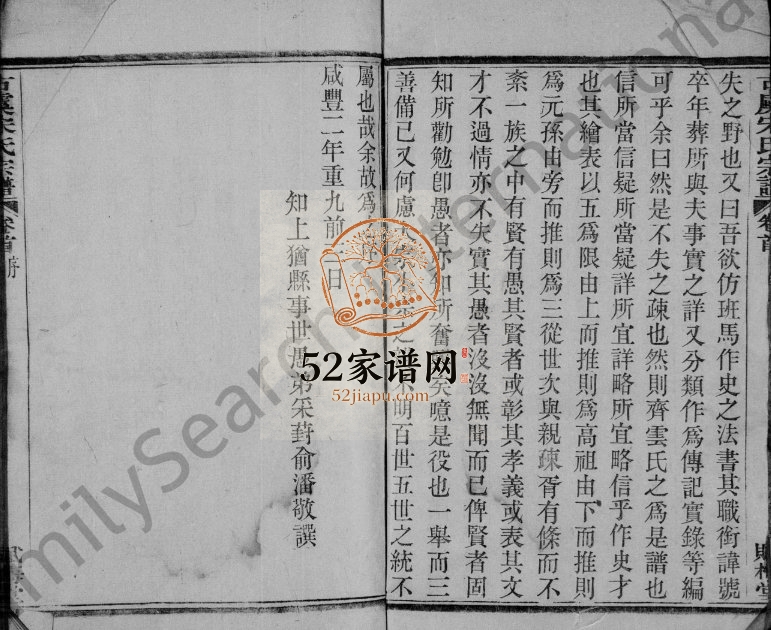 失之野也又曰吾欲仿班馬作史之法書其職銜諱號
卒年葬所與夫事實之詳又分類作爲傳記實錄等編
可乎余曰然是不失之疎也然則齊雲氏之爲是譜也
信所當信疑所當疑詳所宜詳略所宜略信乎作史才
也其繪表以五爲限由上而推則爲高祖由下而推則
爲元孫由旁而推則爲三從世次與親疎胥有條而不
紊一族之中有賢有愚其賢者或彰其孝義或表其文
才不過情亦不失實其愚者沒沒無聞而已俾賢者固
知所勸勉卽愚者亦知所奮 矣噫是役也一舉而三
善備已又何慮 之 不明百世五世之統不
屬也哉余故爲 序
咸豐二年重九前三日
知上猶縣事世愚弟采葑俞潘敬譔
宋氏宗譜
卷首
宋氏宗譜
卷首
52家谱网
52jiapu.com
milySearch International